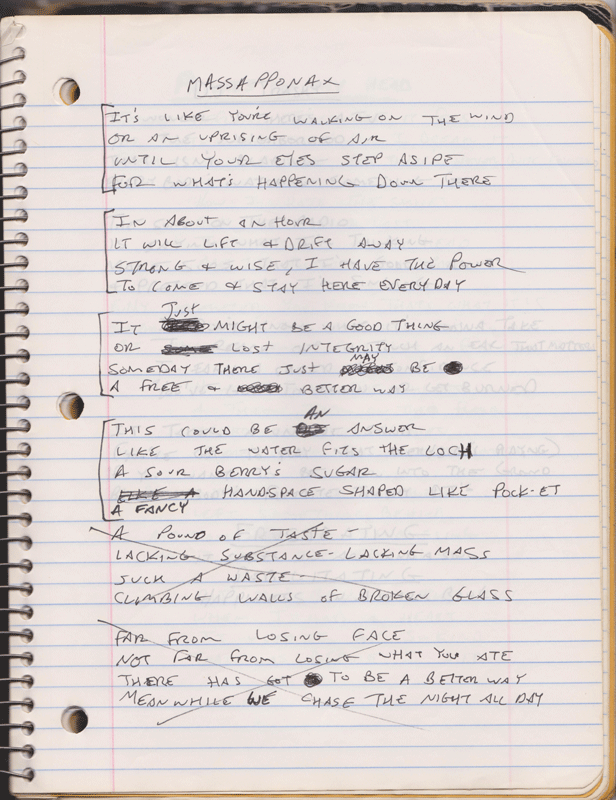 MASSAPPONAX
IT'S LIKE YOU'RE WALKING ON THE WIND
OR AN UPRISING OF AIR
UNTIL YOUR EYES STEP ASIDE
FOR WHAT'S HAPPENING DOWN THERE
IN ABOUT AN HOUR
IT WILL LIFT & DRIFT AWAY
STRONG & WISE, I HAVE THE POWER
TO COME & STAY HERE EVERYDAY
IT JUST MIGHT BE A GOOD THING
OR LOST INTEGRITY
SOMEDAY THERE JUST MAY BE
A FREE & BETTER WAY
THIS COULD BE AN ANSWER
LIKE THE WATER FITS THE LOCH
A SOUR BERRY'S SUGAR
LIKE A HANDSPACE SHAPED LIKE POCK-ET
A FANCY
A POUND OF TASTE -
LACKING SUBSTANCE - LACKING MASS
SUCH A WASTE -
CLIMBING WALLS OF BROKEN GLASS
FAR FROM LOSING FACE
NOT FAR FROM LOSING WHAT YOU ATE
THERE HAS GOT TO BE A BETTER WAY
MEANWHILE WE CHASE THE NIGHT ALL DAY